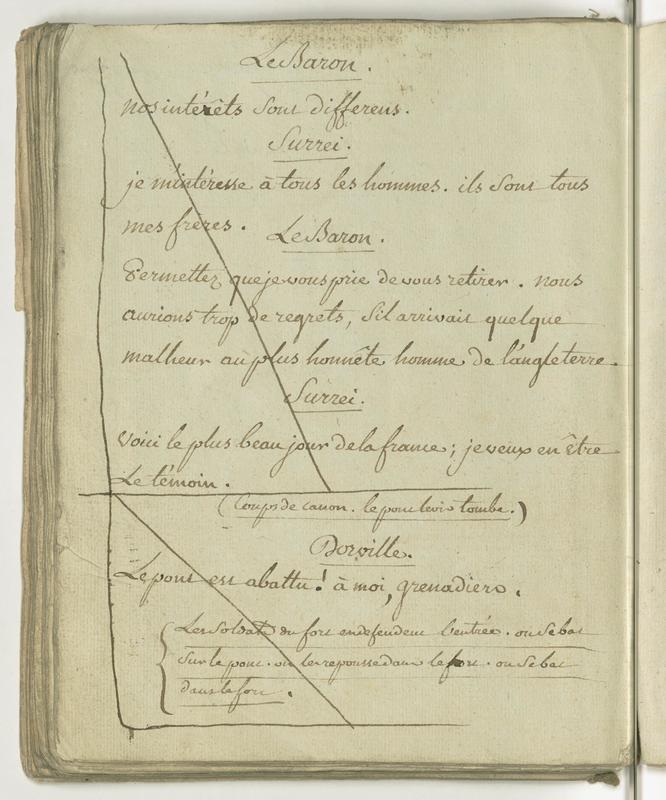 Le Baron.
nos intérêts sont differens.
Surrei.
je m'intéresse à tous les hommes. ils sont tous
mes frères.
Le Baron.
Permettez que je vous prie de vous retirer. nous
aurions trop de regrets, s'il arrivait quelque
malheur au plus honnête homme de l'angleterre.
Surrei.
Voici le plus beau jour de la france; je veux en être
Le témoin.
(Coups de canon. le pont levis tombe.)
Dorville.
Le pont est abattu! à moi, grenadiers.
Les soldats du fort en defendent l'entrée. on se bat
sur le pont. on les repousse dans le fort. on se bat
dans le fort.